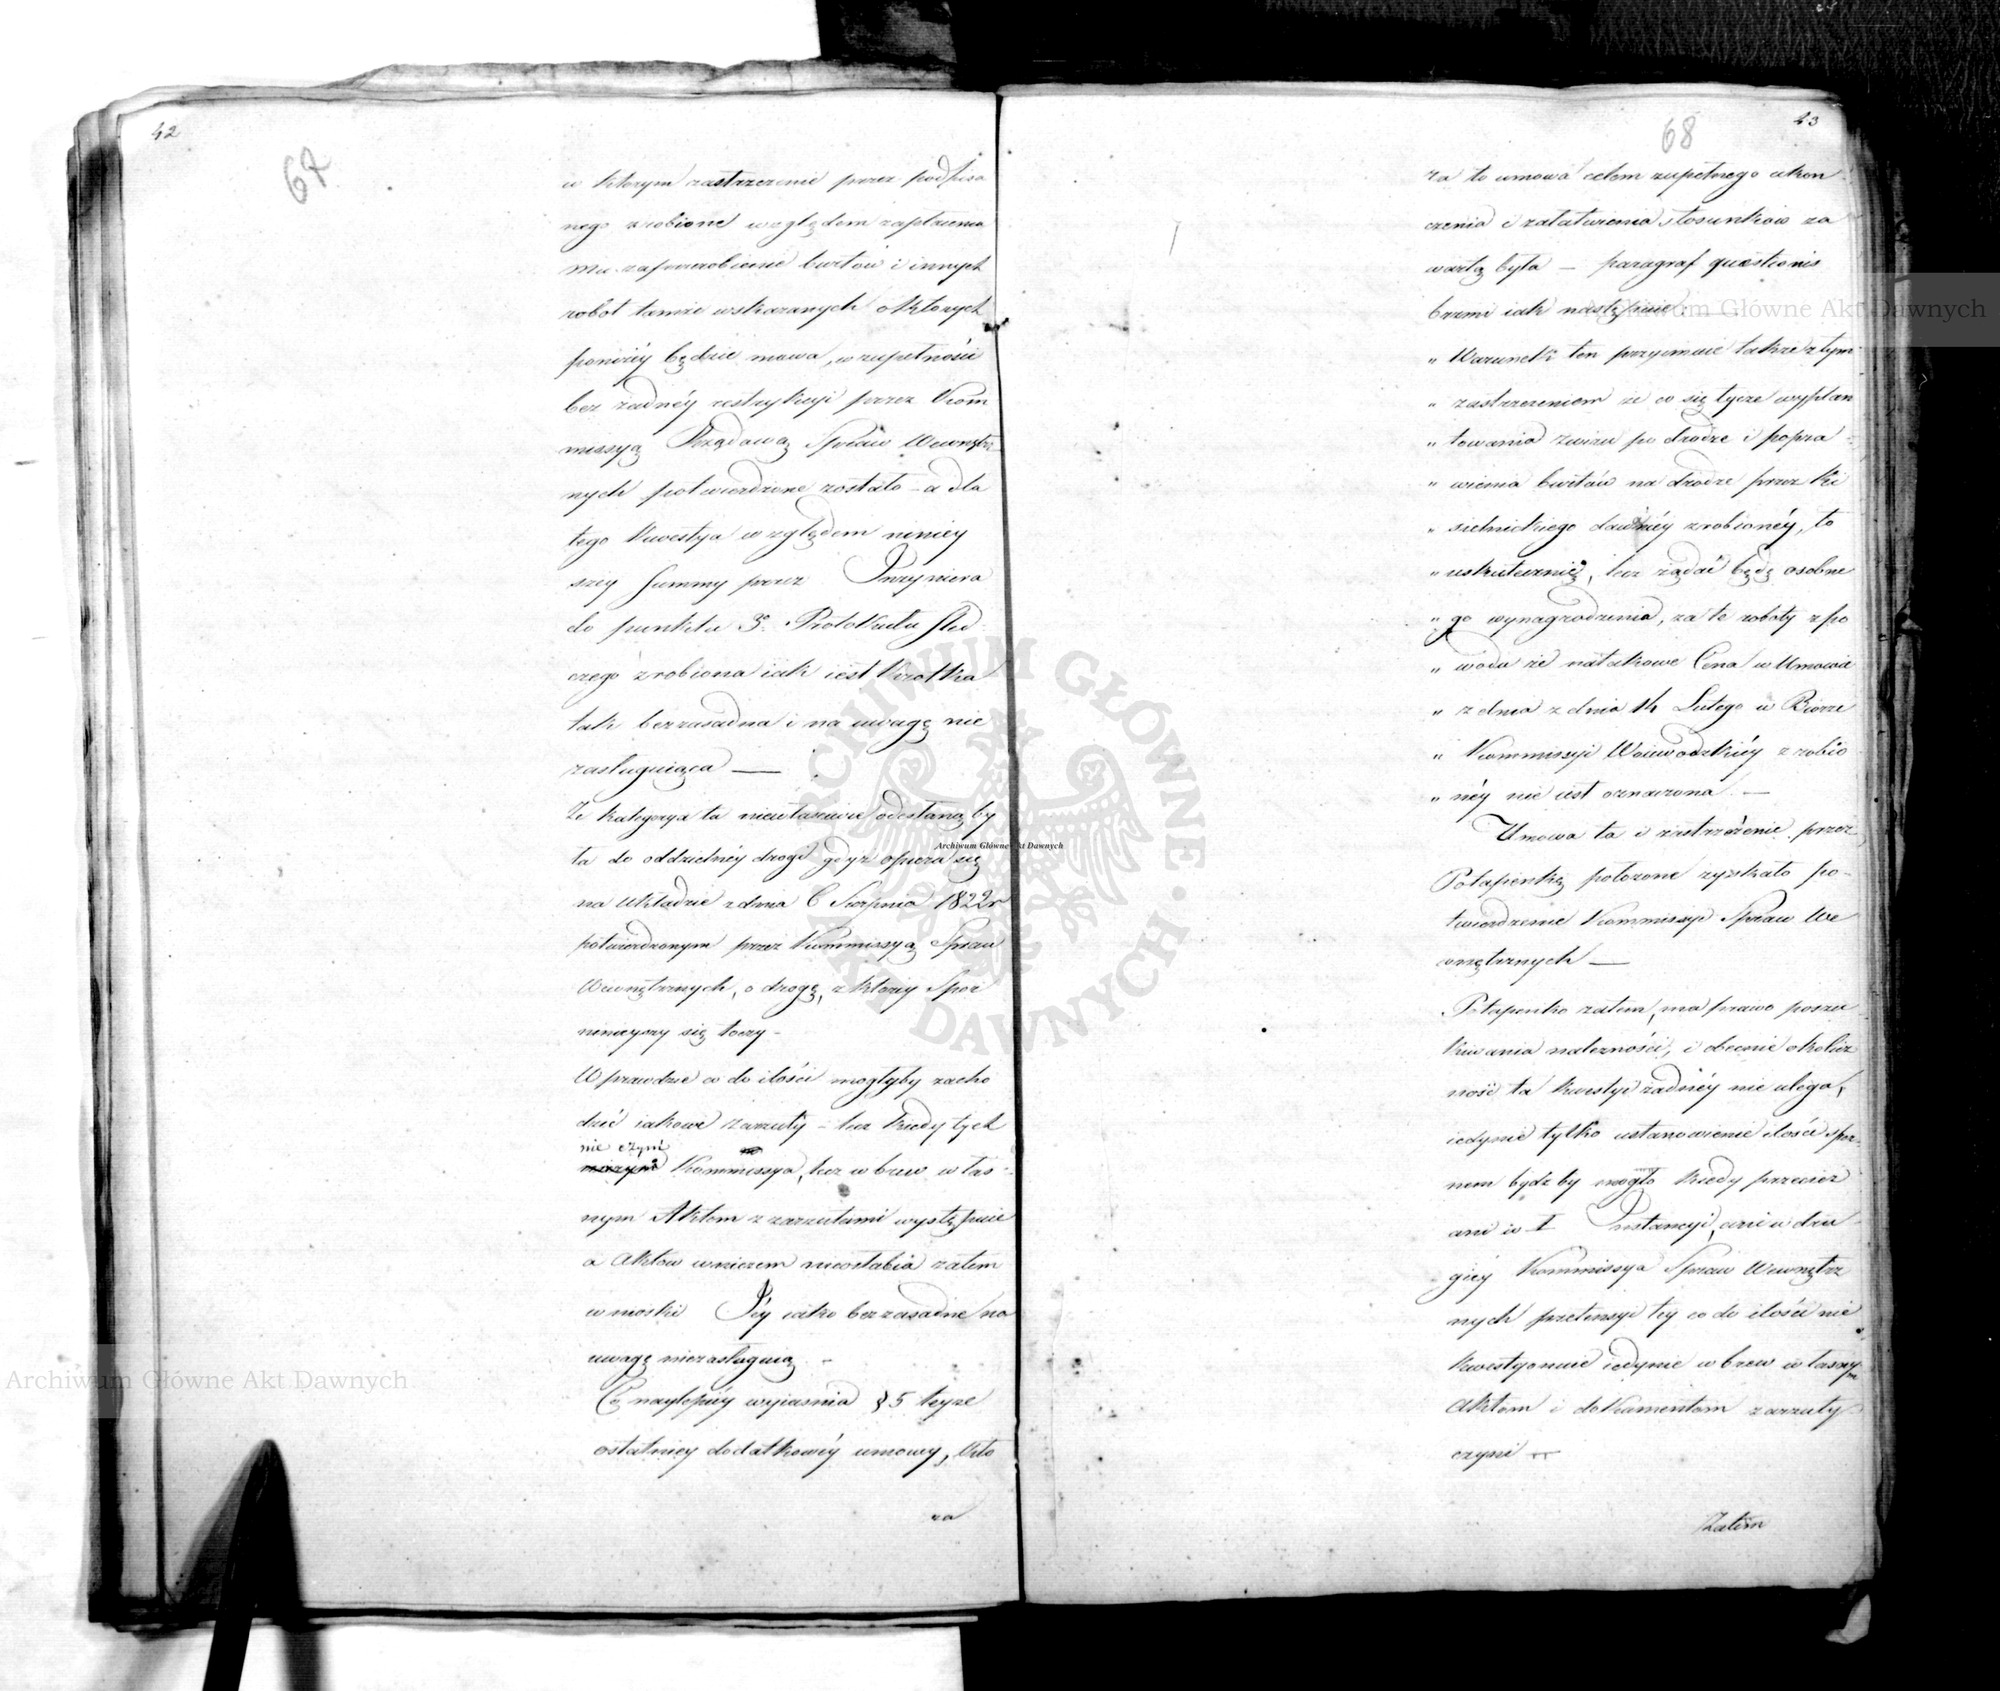 42
67
w ktorym zastrzezenie przez podpisa
nego zrobione względem zapłacenia
mu za przerobienie burtow i innych
robot tamże wskazanych o ktorych
poniżey będzie mowa, w zupełności
bez żadnéy restrykcyi przez Kom
missyą Rządową Spraw Wewnętrz
nych potwierdzone zostało – a dla
tego kwestya względem niniey
szey Summy przez Inzyniera
do punktu 3o Protokułu Sled
czego zrobiona iak iest krotka
tak bezzasadna i na uwagę nie
zasługuiąca —
Ze kategorya ta niewłasciwie odesłaną by
ła do oddzielnéy drogi gdyż opiera się
na układzie z dnia 6 Sierpnia 1822 r
potwierdzonym przez Kommissyą Spraw
Wewnętrznych, o drogę, z ktorey Spor
ninieyszy się toczy –
Wprawdzie co do ilości mogłyby zacho
dzić iakowe zarzuty – lecz kiedy tych
nie czyni
Kommissya, lecz wbrew włas
nym Aktom z zarzutami występuie
a Aktow w niczem nieosłabia zatem
wnioski Jéy iako bezzasadne na
uwagę niezasługuią –
Co naylepiéy wyiasnia § 5 teyże
ostatniey dodatkowéy umowy, któ
ra
Archiwum Główne Akt Dawnych
68
43
ra to umowa celem zupełnego ukoń
czenia i załatwienia stosunków za
wartą była — paragraf questionis
brzmi iak następuie —
„ Warunek ten przyimuie także z tym
„ zastrzezeniem że co się tycze wyplan
„ towania żwiru po drodze i popra
„ wienia burtów na drodze przez Ki
„ sielnickiego dawniéy zrobionéy, to
„ uskutecznię, lecz żądać będę osobne
„ go wynagrodzenia, za te roboty z po
„ wodu że na takowe Cena w Umowie
„ z dnia z dnia 14 Lutego w Biórze
„ Kommissyi Woiewodzkiéy zrobio
„ néy nie iest oznaczona —
Umowa ta i zastrzeżenie przez
Potapienkę położone zyskało po-
twierdzenie Kommissyi Spraw We
wnętrznych —
Potapenko zatem, ma prawo poszu
kiwania należności, i obecnie okolicz
ność ta kwestyi żadnéy nie ulega,
iedynie tylko ustanowienie ilości spor
nem bydz by mogło kiedy przecież
ani w I Instancyi, ani w dru
giey Kommissya Spraw Wewnętrz
nych pretensyi tey co do ilości nie
kwestyonuie iedynie wbrew własnym
Aktom i dokumentom zarzuty
czyni —
Zatem
Archiwum Główne Akt Dawnych
Archiwum Główne Akt Dawnych
ARCHIWUM GŁÓWNE · AKT DAWNYCH ·